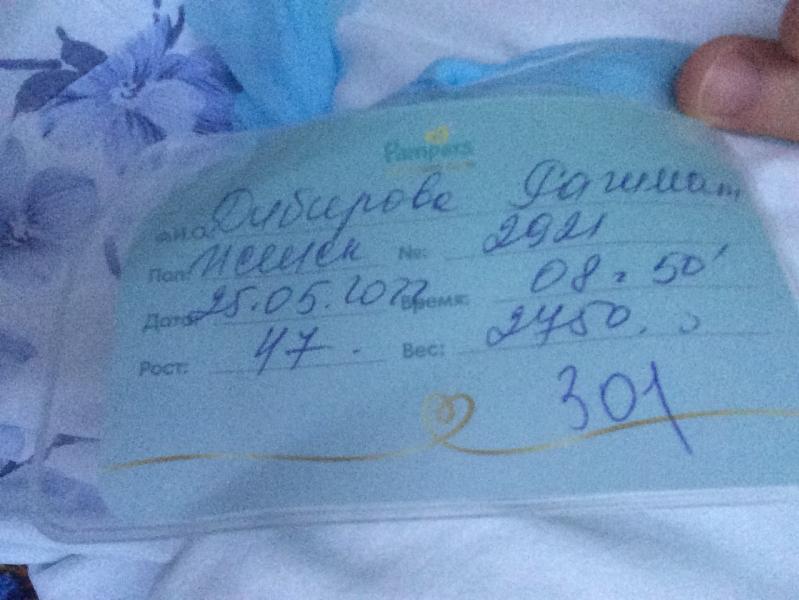 Pampers
Ф.И.О. Дибирова Фатимат
Пол: женск №: 2921
Дата: 25.05.2022 Время: 08 ч 50'
Рост: 47. Вес: 2750.
301